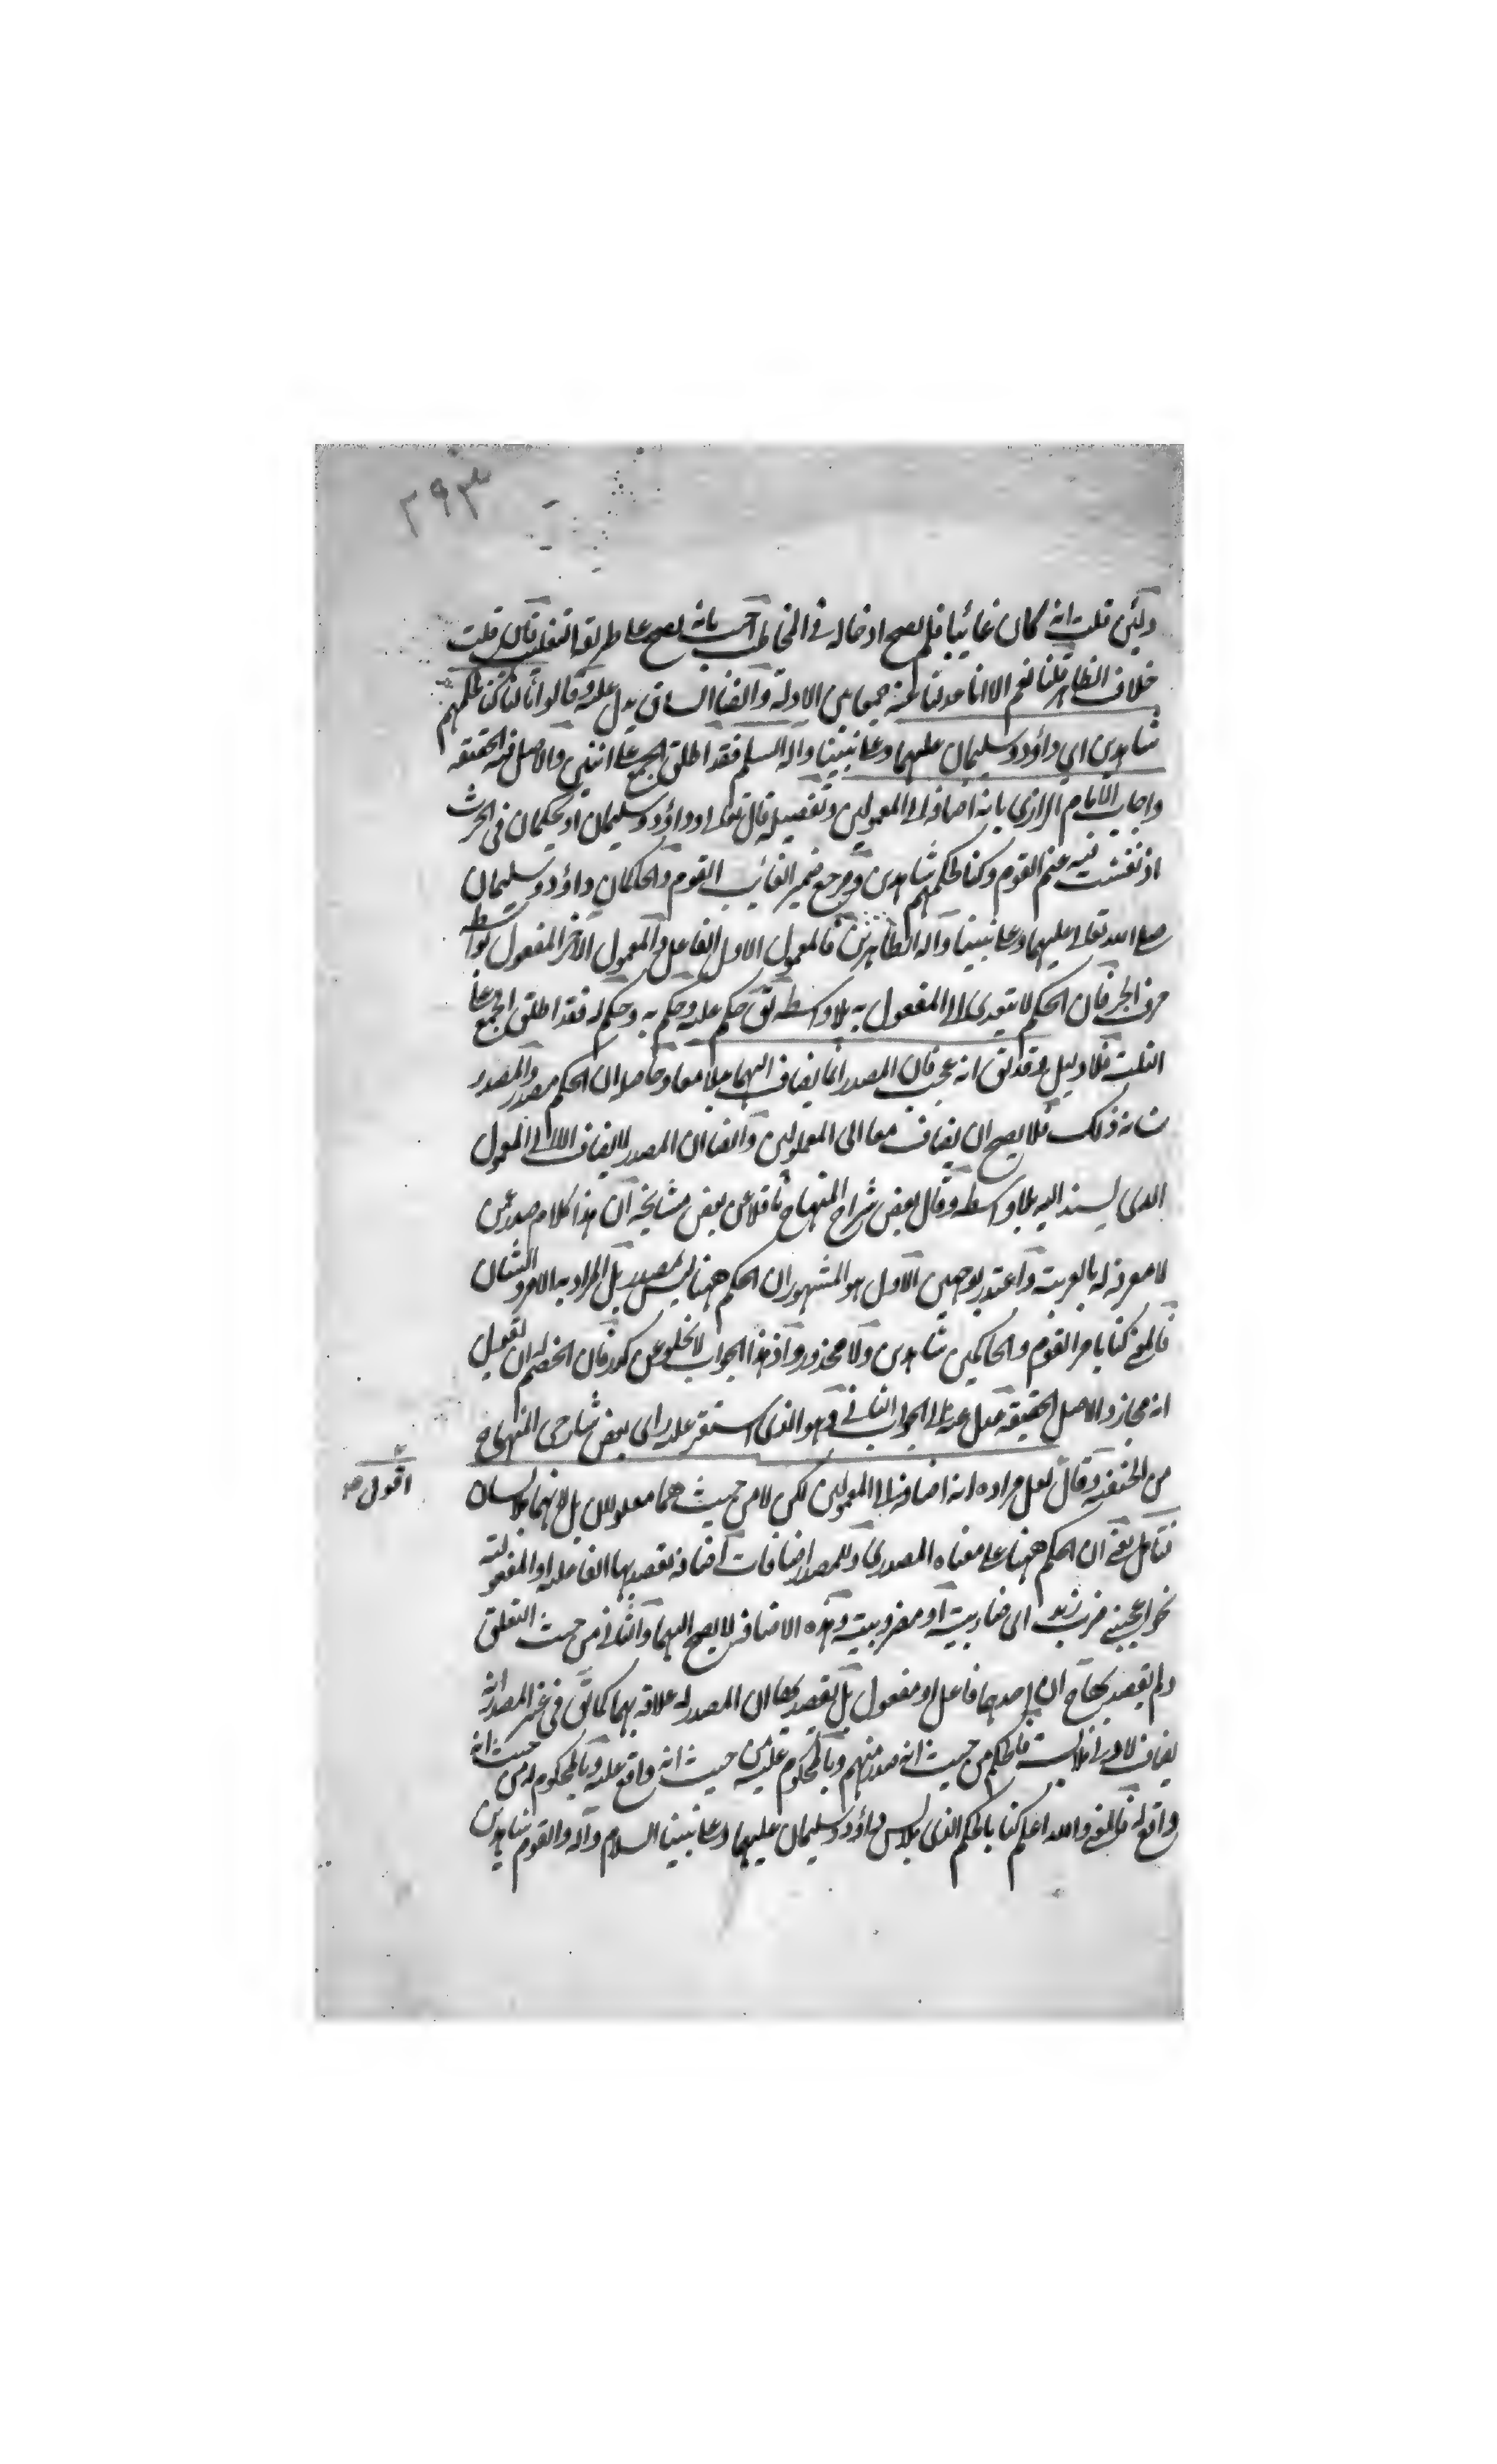 ٢٩٣
ولئن قلت انه كان غائبا فلم يصح ادخاله في المخاطب اجيب بانه يصح على طريقة التغليب فان قلت
خلاف الظاهر قلنا نعم الا انا عدلنا عنه جمعا بين الادلة وايضا السياق يدل عليه وقالوا ثالثا كنا لحكمهم
شاهدين اي داؤد وسليمان عليهما وعلى نبينا وآله السلم فقد اطلق الجمع على اثنين والاصل فيه الحقيقة
واجاب الامام الرازي بانه اضافة الى المعمولين وتفصيله قال تعالى وداؤد وسليمان اذ يحكمان في الحرث
اذ نفشت فيه غنم القوم وكنا لحكمهم شاهدين ومرجع ضمير الغائب القوم والحاكمان داؤد وسليمان
صلى الله تعالى عليهما وعلى نبينا وآله الطاهرين فالمعمول الاول الفاعل والمعمول الآخر المفعول بواسطة
حرف الجر فان الحكم لا يتعدى الى المفعول به بلا واسطة يق حكم عليه وحكم به وحكم له فقد اطلق الجمع على
الثلث فلا دليل وقد يق انه عجب فان المصدر انما يضاف اليهما بدلا معا وحاصله ان الحكم مصدر والمصدر
شانه ذلك فلا يصح ان يضاف معا الى المعمولين وايضا ان المصدر لا يضاف الا الى المعمول
الذى يسند اليه بلا واسطة وقال بعض شراح المنهاج ناقلا عن بعض مشايخه ان هذا كلام صدر عمن
لا معرفة له بالعربية واعتذر بوجهين الاول هو المشهور ان الحكم ههنا ليس بمصدر بل المراد به الامر والشان
فالمعنى كنا بامر القوم والحاكمين شاهدين ولا محذور واذ هذا الجواب لا يخلو عن كدر فان الخصم له ان يقول
انه مجاز والاصل الحقيقة عدل عنه الى الجواب الثاني وهو الذى استقر عليه راى بعض شارحى المنهاج
من الحنفية وقال لعل مراده انه اضافة الى المعمولين لكن لا من حيث هما معمولان بل لانهما ملابسان
اقول
فتامل يعنى ان الحكم ههنا على معناه المصدرى وللمصدر اضافات اضافة يقصد بها الفاعلية او المفعولية
نحو اعجبنى ضرب زيد اى ضاربيته او مضروبيته وهذه الاضافة لا يصح اليهما والثاني من حيث التعلق
ولم يقصد بها ح ان احدهما فاعل او مفعول بل يقصد بها ان المصدر له علاقة بهما كما يق في غير المصدر انه
يضاف لادنى ملابسة فالحكم من حيث انه صدر منهم وبالمحكوم عليه من حيث انه واقع عليه وبالمحكوم له من حيث انه
واقع له فالمعنى والله اعلم كنا بالحكم الذى ملابس بداؤد وسليمان عليهما وعلى نبينا السلام وآله والقوم شاهدين